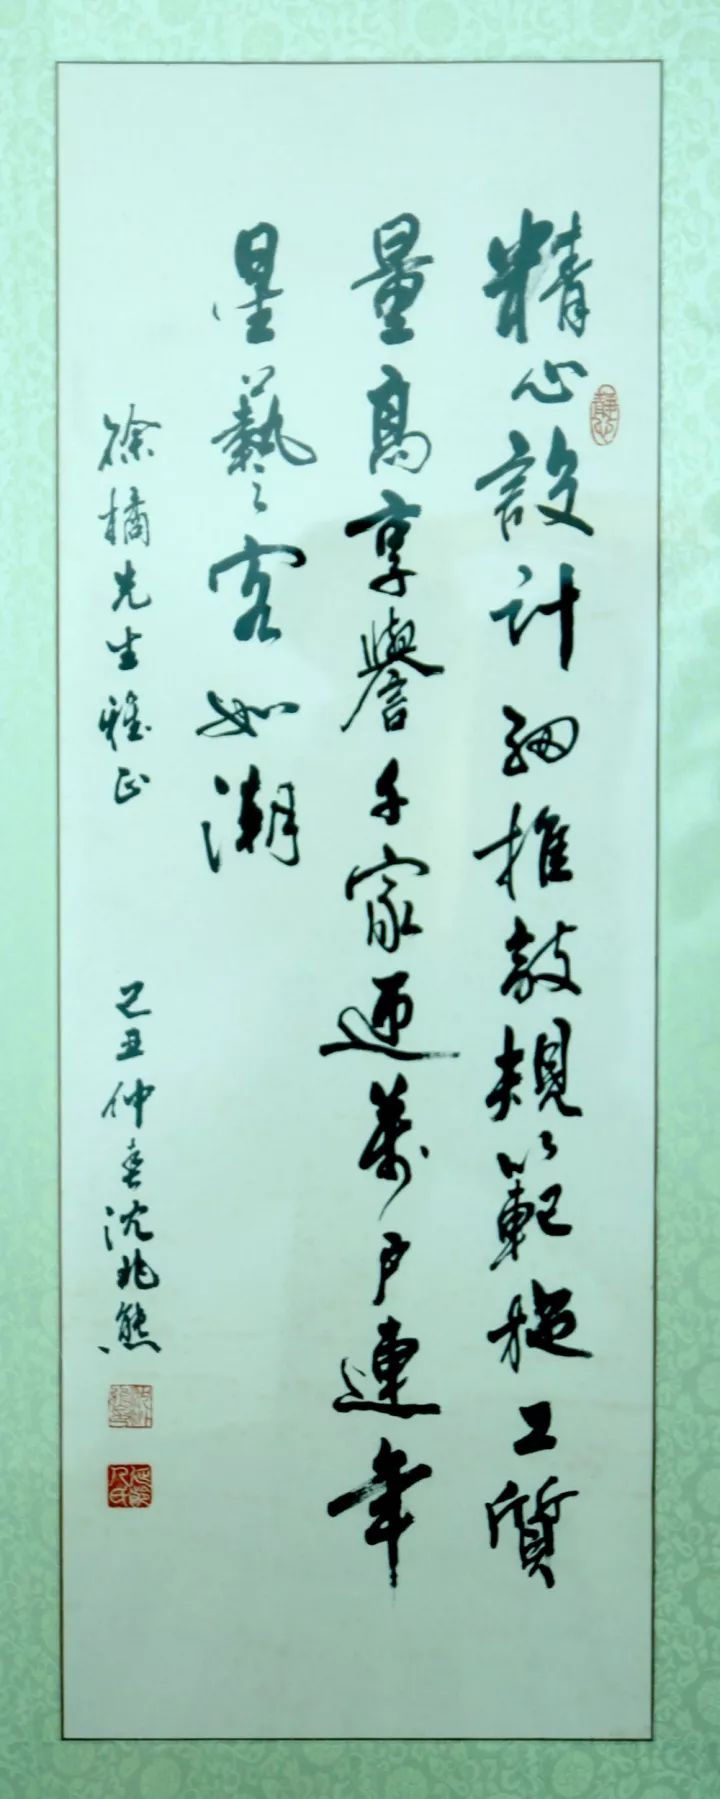 精心設計細推敲規範施工質
量高享譽千家迎萬戶連年
星藝客如潮
徐橘先生雅正 己丑仲春沈兆熊